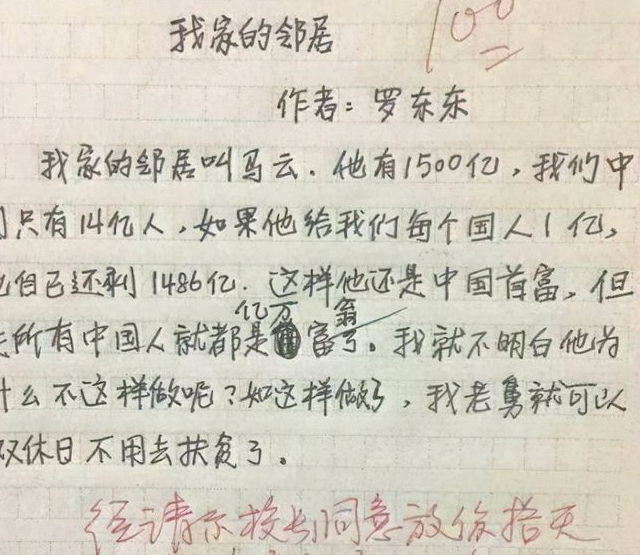 我家的邻居
100
作者：罗东东
我家的邻居叫马云．他有1500亿，我们中
只有14亿人，如果他给我们每个国人1亿，
自己还剩1486亿．这样他还是中国首富，但
亿万 翁
所有中国人就都是富了。我就不明白他为
什么不这样做呢？如这样做了，我老舅就可以
双休日不用去扶贫了。
经请示校长同意放你拾天